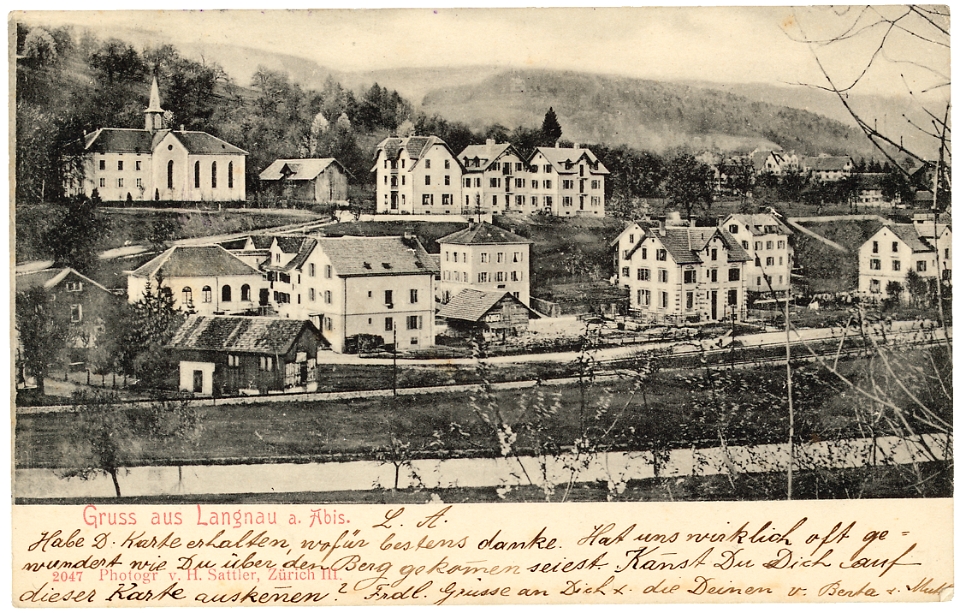 Gruss aus Langnau a. Abis.
L. A.
Habe D. Karte erhalten, wofür bestens danke. Hat uns wirklich oft ge=
wundert wie Du über den Berg gekom̄en seiest. Kanst Du Dich auf
2047 Photogr v. H. Sattler, Zürich III.
dieser Karte auskenen? Frdl. Grüsse an Dich u. die Deinen v. Berta u.